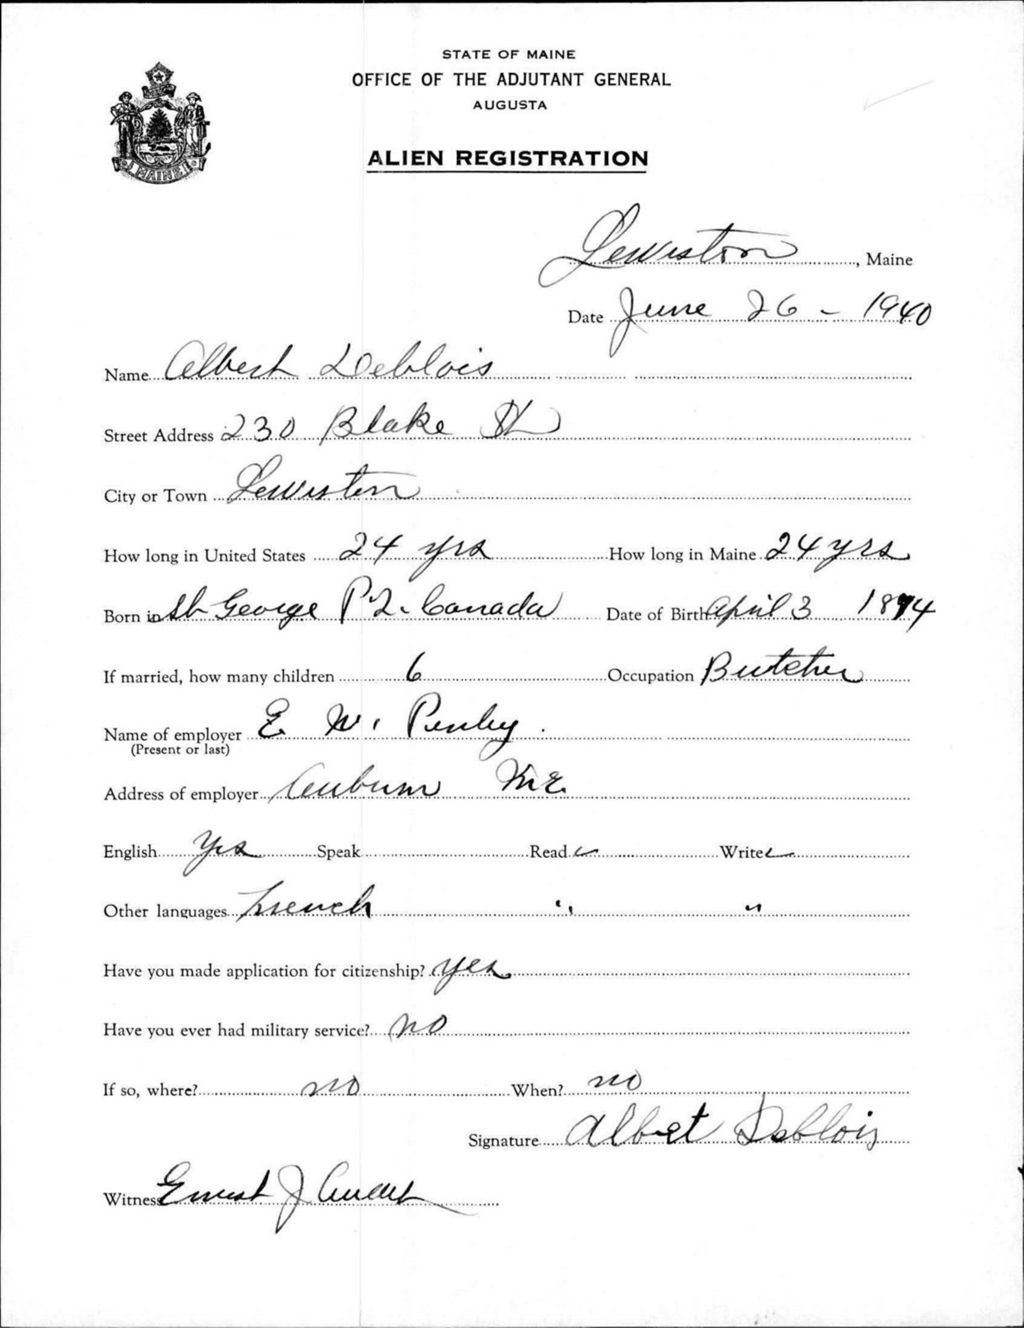 STATE OF MAINE
OFFICE OF THE ADJUTANT GENERAL
AUGUSTA
ALIEN REGISTRATION
MAINE
Lewiston, Maine
Date June 26 - 1940
Name Albert Deblois
Street Address 230 Blake St
City or Town Lewiston
How long in United States 24 yrs How long in Maine 24 yrs
Born in St George P.Q. Canada Date of Birth April 3
If married, how many children 6 Occupation Butcher
Name of employer E. W. Penley.
(Present or last)
Address of employer Auburn Me.
English Yes Speak Read ✓ Write ✓
Other languages French " "
Have you made application for citizenship? yes
Have you ever had military service? no
If so, where? no When? no
Signature Albert Deblois
Witness Ernest J